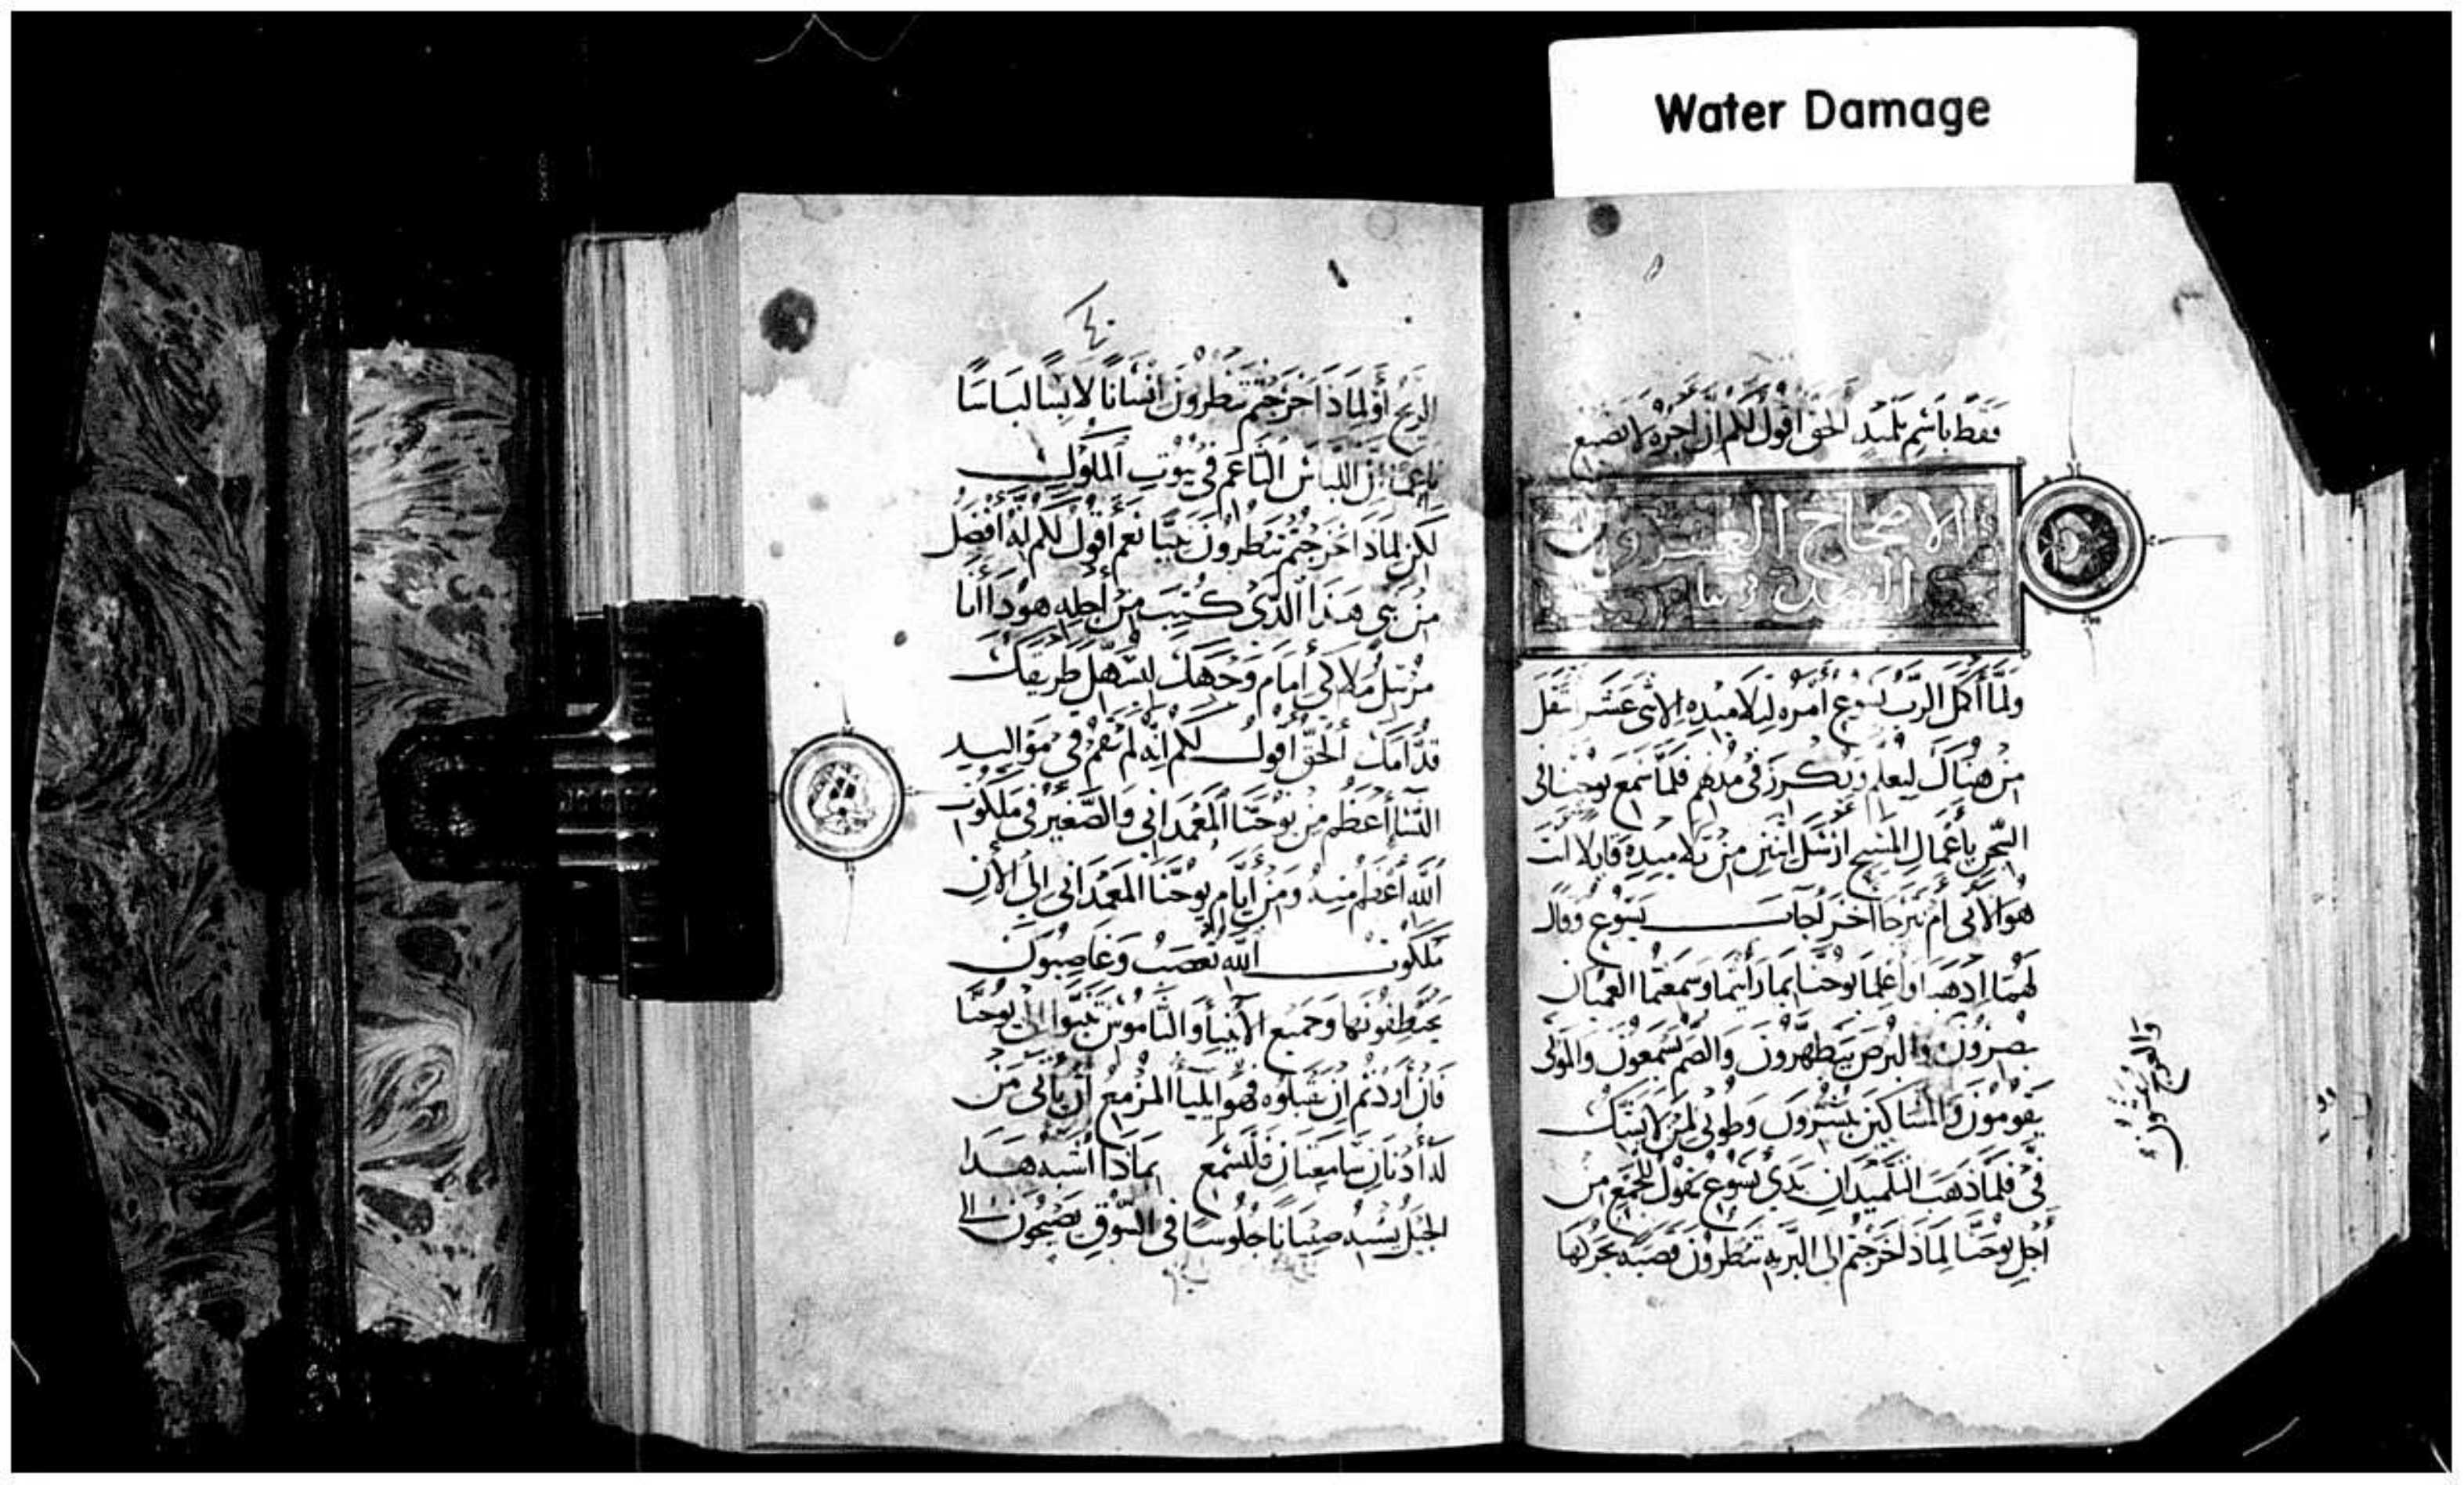 Water Damage
فقط باسم تلميد الحق اقول لكم ان اجره لا يضيع
الاصحاح العشرون
ولما اكمل الرب يسوع امره لتلاميده الاثنى عشر انتقل
من هناك ليعلم ويكرز في مدنهم فلما سمع يوحنا في
السجن باعمال المسيح ارسل اثنين من تلاميده قايلا انت
هو الاتي ام نترجا اخر اجاب يسوع وقال
لهما ادهبا واعلما يوحنا بما رايتما وسمعتما العميان
يبصرون والبرص يتطهرون والصم يسمعون والموتى
يقومون والمساكين يبشرون وطوبى لمن لا يشك
في فلما ذهب التلميدان بدى يسوع يقول للجمع من
اجل يوحنا لماذا خرجتم الى البرية تنظرون قصبة تحركها
والعرج يمشون
الريح أو لماذا خرجتم تنظرون انسانا لابسا لباسا
ناعما ان اللباس الناعم في بيوت الملوك
لكن لماذا خرجتم تنظرون نبيا نعم اقول لكم انه أفضل
من نبي هذا الذي كتب من أجله هودا أنا
مرسل ملاكي أمام وجهك ليسهل طريقك
قدامك الحق اقول لكم انه لم يقم في مواليد
النسا أعظم من يوحنا المعمداني والصغير في ملكوت
الله اعظم منه ومن أيام يوحنا المعمداني الى الان
ملكوت الله تغصب وغاصبون
يختطفونها وجميع الأنبيا والناموس تنبوا الى يوحنا
فان أردتم ان تقبلوه فهو ايليا المزمع أن يأتي من
له أدنان سامعتان فليسمع بماذا أشبه هدا
الجيل يشبه صبيانا جلوسا في السوق يصيحون الى